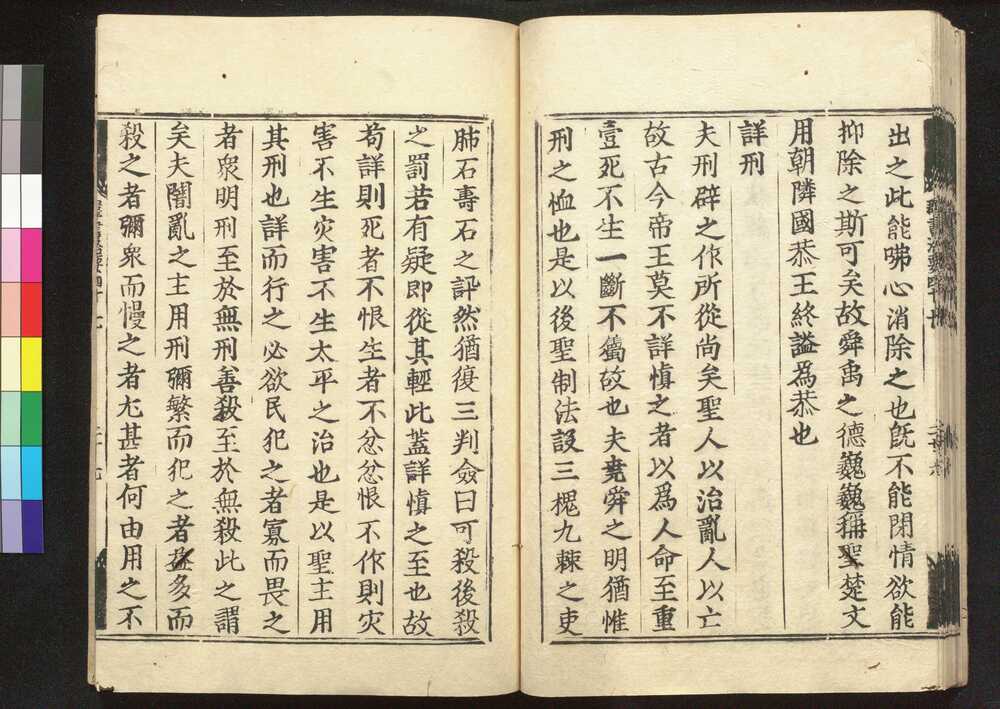 出之此能咈心消除之也旣不能閉情欲能
抑除之斯可矣故舜禹之德巍巍稱聖楚文
用朝隣國恭王終謚爲恭也
詳刑
夫刑辟之作所從尚矣聖人以治亂人以亡
故古今帝王莫不詳愼之者以爲人命至重
壹死不生一斷不屬故也夫堯舜之明猶惟
刑之恤也是以後聖制法設三槐九棘之吏
肺石壽石之訊然猶復三判僉曰可殺後殺
之罰若有疑即從其輕此蓋詳愼之至也故
苟詳則死者不恨生者不忿忿恨不作則灾
害不生灾害不生太平之治也是以聖主用
其刑也詳而行之必欲民犯之者寡而畏之
者衆明刑至於無刑善殺至於無殺此之謂
矣夫闇亂之主用刑彌繁而犯之者益多而
殺之者彌衆而慢之者尤甚者何由用之不
羣書治要四十七